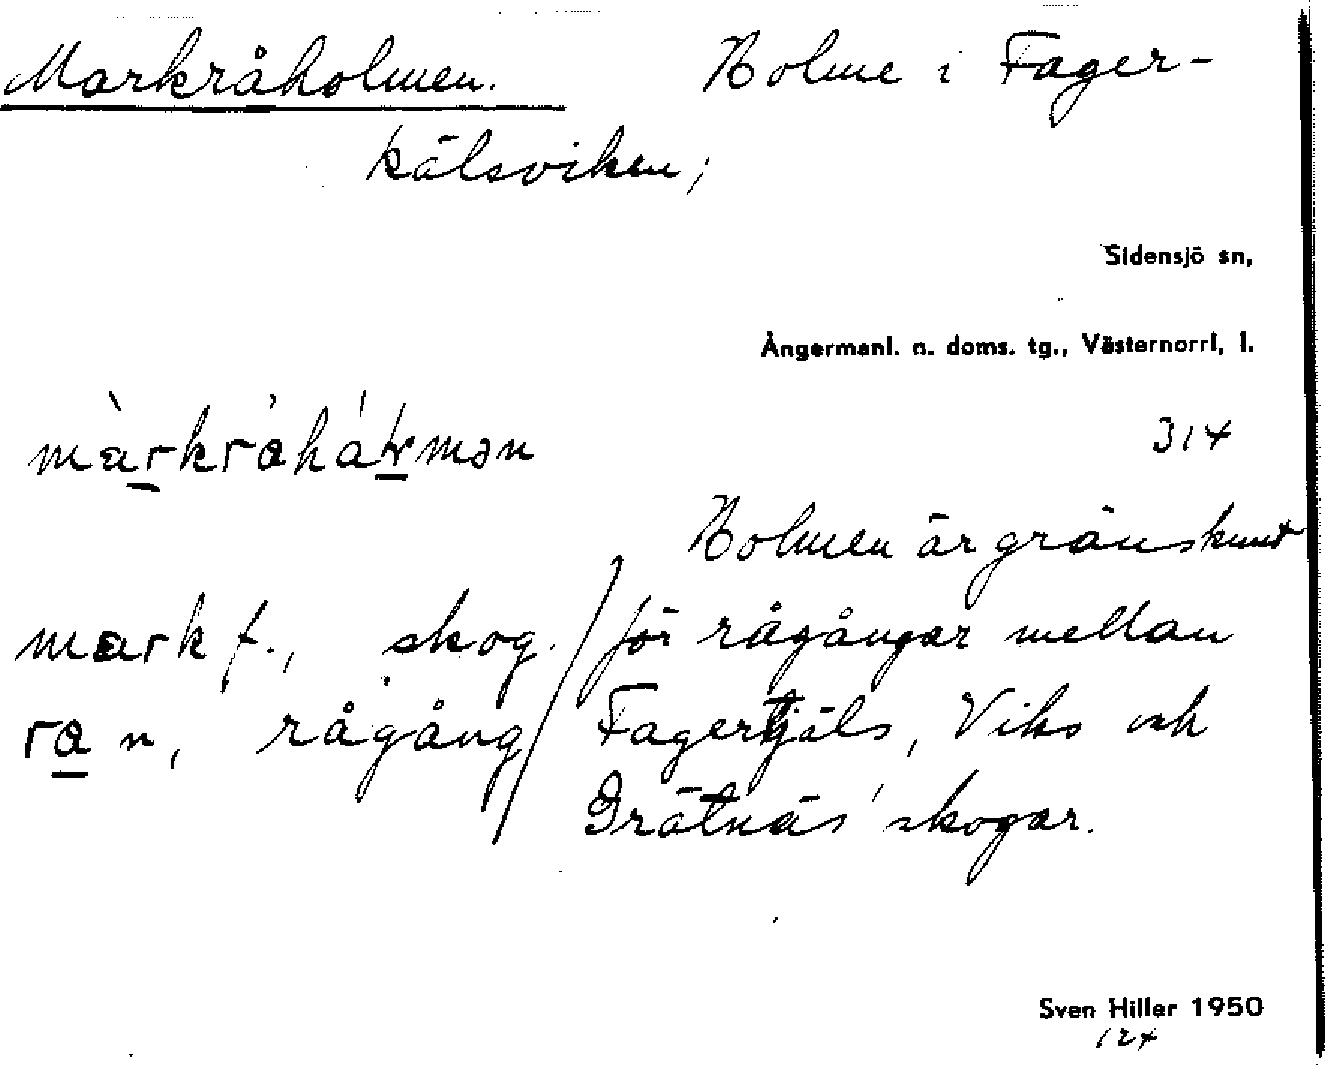 Markråholmen. Holme i Fager-
kälsviken;
Sidensjö sn,
Ångermanl. n. doms. tg., Västernorrl. l.
314
Holmen är gränskunt
mark f., skog. / för rågångar mellan
ra n, rågång / Fagertjäls, Viks och
Grätnäs' skogar.
Sven Hiller 1950
124